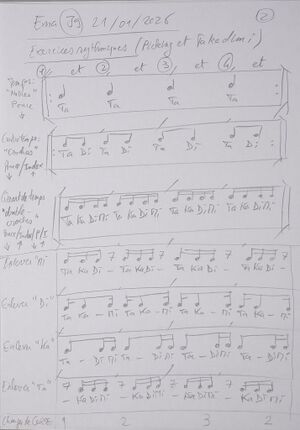 Ema J9 21/01/2026 2
Exercices rythmiques (Picking et Takedimi)
1 et 2 et 3 et 4 et
Temps:
"Noires"
Pouce
Ta Ta Ta Ta
"Croches"
Pouce/Index
Ta Di Ta Di Ta Di Ta Di
"double-
croches"
Ta Ka Di Mi Ta Ka Di Mi Ta Ka Di Mi Ta Ka Di Mi
Enlever "Mi"
Ta Ka Di Ta Ka Di Ta Ka Di Ta Ka Di
Enlever "Di"
Ta Ka - Mi Ta Ka - Mi Ta Ka - Mi Ta Ka - Mi
Enlever "Ka"
Ta - Di Mi Ta - Di Mi Ta - Di Mi Ta - Di Mi
Enlever "Ta"
- Ka Di Mi - Ka Di Mi - Ka Di Mi - Ka Di Mi
1 2 3 2